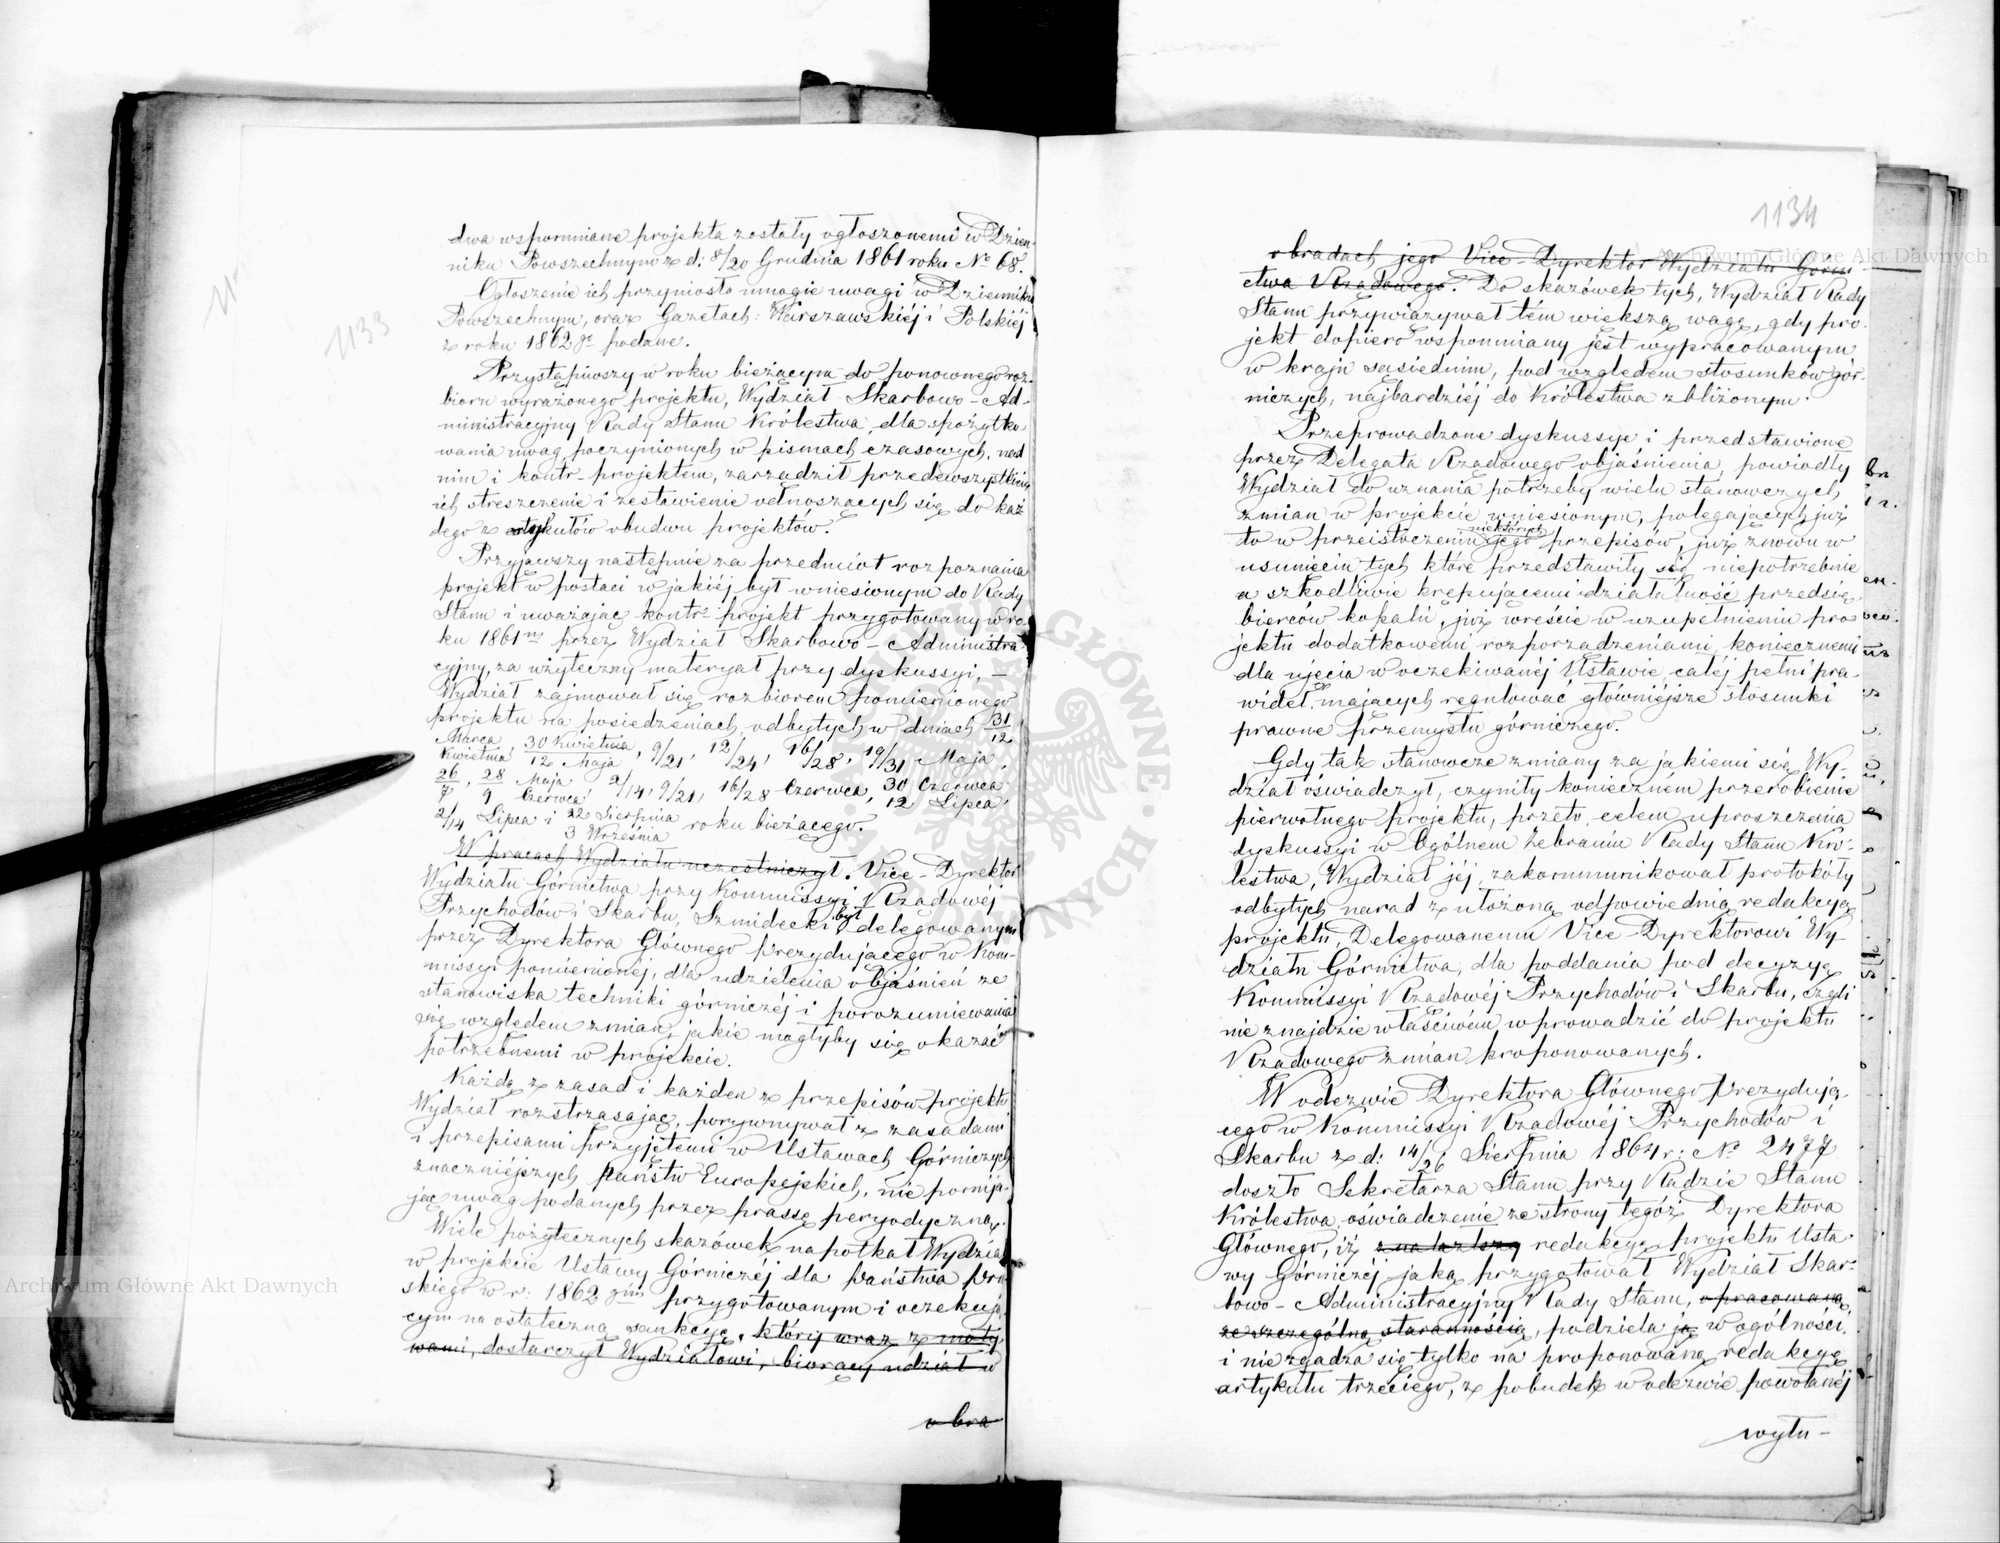 1133
dwa wspomniane projekta zostały ogłoszonemi w Dzien-
niku Powszechnym z d: 8/20 Grudnia 1861 roku No 68.
Ogłoszenie ich przyniosło mnogie uwagi w Dzienniku
Powszechnym, oraz Gazetach: Warszawskiéj i Polskiéj
z roku 1862 go podane.
Przystąpiwszy w roku bieżącym do ponownego roz-
bioru wyrażonego projektu, Wydział Skarbowo-Ad-
ministracyjny Rady Stanu Królestwa, dla spożytko
wania uwag poczynionych w pismach czasowych, nad
nim i kontr-projektem, zarządził przedewszystkiém
ich streszczenie i zestawienie odnoszących się do każ
dego z artykułów obudwu projektów.
Przyjąwszy następnie za przedmiot rozpoznania
projekt w postaci w jakiéj był wniesionym do Rady
Stanu i uważając kontr-projekt przygotowany w ro-
ku 1861 m przez Wydział Skarbowo-Administra-
cyjny, za użyteczny materyał przy dyskussyi, –
Wydział zajmował się rozbiorem pomienionego
projektu na posiedzeniach, odbytych w dniach 31/12
Marca/Kwietnia, 30 Kwietnia/12 Maja, 9/21, 12/24, 16/28, 19/31 Maja,
26/7, 28 Maja/9 Czerwca, 2/14, 9/21, 16/28 Czerwca, 30 Czerwca/12 Lipca,
2/14 Lipca i 22 Sierpnia/3 Września roku bieżącego.
W pracach Wydziału uczestniczył. Vice-Dyrektor
Wydziału Górnictwa przy Kommissyi Rządowéj
Przychodów i Skarbu, Szmidecki, był delegowanym
przez Dyrektora Głównego Prezydującego w Kom-
missyi pomienionéj, dla udzielenia objaśnień ze
stanowiska techniki górniczéj i porozumiewania
się względem zmian, jakie mogłyby się okazać
potrzebnemi w projekcie.
Każdą z zasad i każden z przepisów projektu
Wydział roztrząsając, porywnywał z zasadami
i przepisami przyjętemi w Ustawach Górniczych
znaczniéjszych państw Europejskich, nie pomija-
jąc uwag podanych przez prassę peryodyczną.
Wiele pożytecznych skazówek napotkał Wydział
w projekcie Ustawy Górniczéj dla państwa Pru
skiego w r: 1862 gim przygotowanym i oczekują
cym na ostateczną sankcyę, który wraz z moty
wami, dostarczył Wydziałowi, biorący udział w
obra
1134
obradach jego Vice-Dyrektor Wydziału Górni-
ctwa Rządowego. Do skazówek tych, Wydział Rady
Stanu przywiązywał tém większą wagę, gdy pro-
jekt dopiero wspomniany jest wypracowanym
w kraju sąsiednim, pod względem stosunków gór-
niczych, najbardziéj do Królestwa zbliżonym.
Przeprowadzone dyskussye i przedstawione
przez Delegata Rządowego objaśnienia, powiodły
Wydział do uznania potrzeby wielu stanowczych
zmian w projekcie wniesionym, polegających już
to w przeistoczeniu niektórych jego przepisów, już znowu w
usunięciu tych które przedstawiły się niepotrzebnie
a szkodliwie krępującemi działalność przedsię
bierców kopalń, już wreście w uzupełnieniu pro
jektu dodatkowemi rozporządzeniami, koniecznemi
dla ujęcia w oczekiwanéj Ustawie całéj pełni pra-
wideł, mających regulować główniéjsze stosunki
prawne przemysłu górniczego.
Gdy tak stanowcze zmiany za jakiemi się Wy-
dział oświadczył, czyniły konieczném przerobienie
pierwotnego projektu, przeto celem uproszczenia
dyskussyi w Ogólnem Zebraniu Rady Stanu Kró-
lestwa, Wydział jéj, zakommunikował protokóły
odbytych narad z ułożoną odpowiednią redakcyą
projektu, Delegowanemu Vice-Dyrektorowi Wy-
działu Górnictwa, dla poddania pod decyzyę
Kommissyi Rządowéj Przychodów i Skarbu, czyli
nie znajdzie właściwém wprowadzić do projektu
Rządowego zmian proponowanych.
W odezwie Dyrektora Głównego Prezydują-
cego w Kommissyi Rządowéj Przychodów i
Skarbu z d: 14/26 Sierpnia 1864 r: No 2477
doszło Sekretarza Stanu przy Radzie Stanu
Królestwa oświadczenie ze strony tegóż Dyrektora
Głównego, iż znalazłszy redakcyę projektu Usta
wy Górniczéj jaką przygotował Wydział Skar-
bowo-Administracyjny Rady Stanu, opracowaną
ze szczególną starannością, podziela ją w ogólności,
i nie zgadza się tylko na proponowaną redakcyę
artykułu trzeciego, z pobudek w odezwie powołanéj
wyłu-
Archiwum Główne Akt Dawnych
Archiwum Główne Akt Dawnych